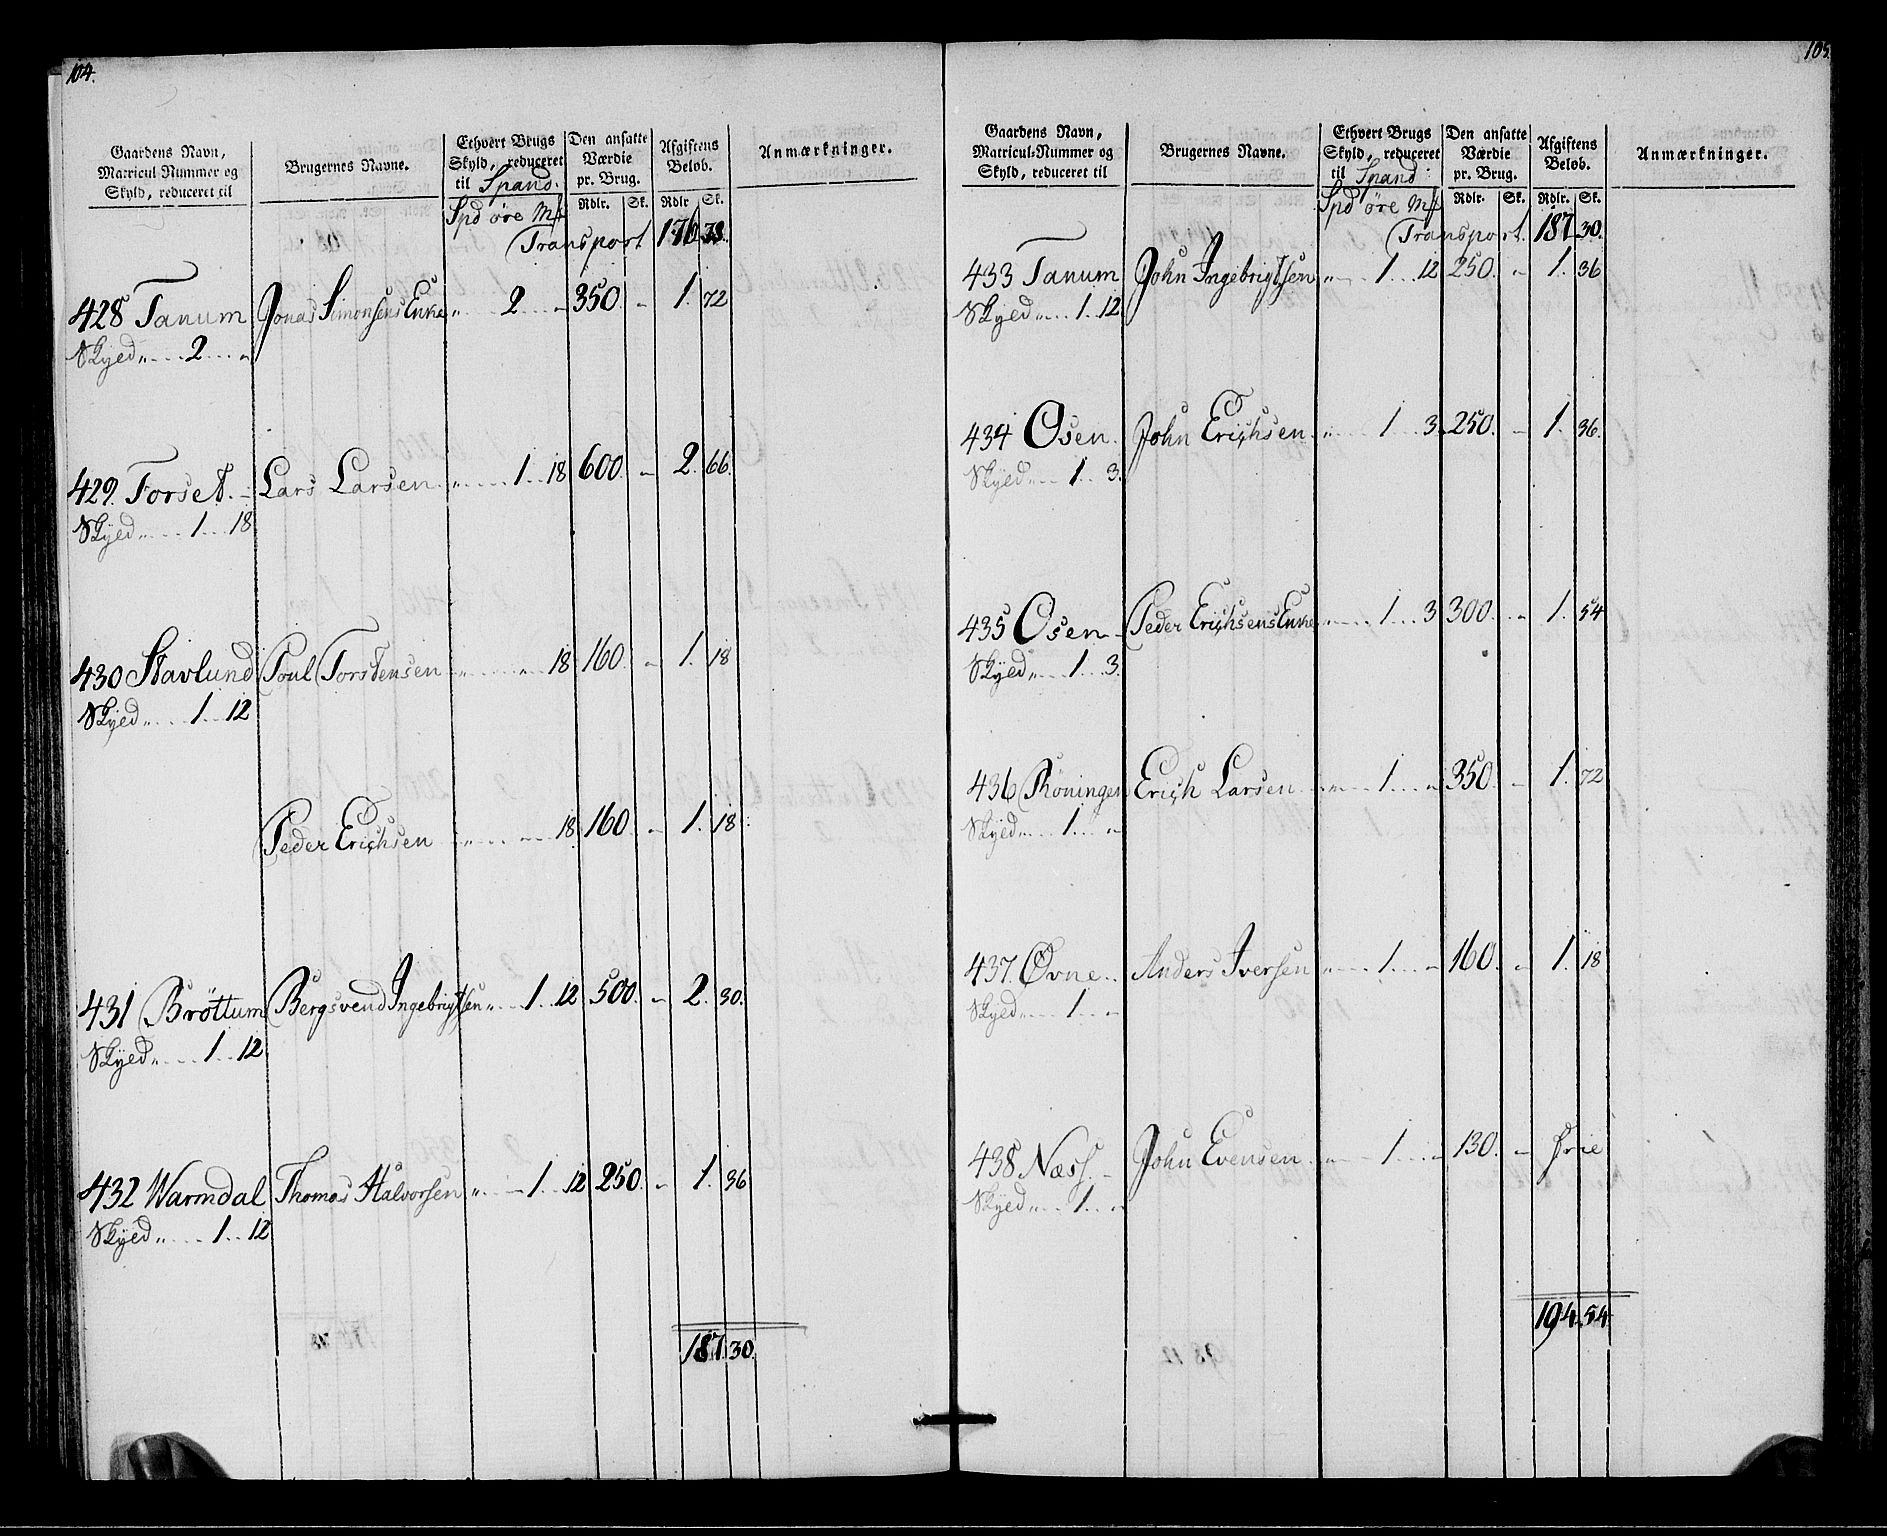 104.
Gaardens Navn, Matricul Nummer og Skyld, reduceret til | Brugernes Navne. | Ethvert Brugs Skyld, reduceret til Spand. | Den ansatte Værdie pr. Brug. | Afgiftens Beløb. | Anmærkninger.
Spd øre Mk | Rdlr. | Sk. | Rdlr | Sk.
Transport 176
428 Tanum Jonas Simonsens Enke „ 2 „ 350. „ 1. 72
Skyed „ 2 „
429. Forset. Lars Larsen „ 1 18 600. „ 2. 66.
Skyed „ 1 18
430 Stavlund Poul Torstensen „ „ 18 160. „ 1. 18
Skyed „ 1 12
Peder Erichsen „ „ 18 160 „ 1. 18
431 Bröttum Bergsvend Ingebrigtsen „ 1 12 500. „ 2. 30.
Skyed „ 1 12
432 Warmdal Thomas Halvorsen „ 1 12 250. „ 1. 36
Skyed „ 1 12
187. 30.
105.
Gaardens Navn, Matricul-Nummer og Skyld, reduceret til | Brugernes Navne. | Ethvert Brugs Skyld, reduceret til Spand | Den ansatte Værdie pr. Brug. | Afgiftens Beløb. | Anmærkninger.
Spd øre Mk | Rdlr. | Sk. | Rdlr. | Sk.
Transport. 187 30.
433 Tanum John Ingebrigtsen „ 1 12 250. „ 1. 36
Skyed „ 1 12
434 Osen. John Erichsen „ 1 3 250. „ 1. 36.
Skyed „ 1 3.
435 Osen Peder Erichsens Enke „ 1 3 300. „ 1. 54
Skyed „ 1 3.
436 Röningen Erich Larsen „ 1 „ 350. „ 1. 72
Skyed „ 1 „
437. Øvne Anders Iversen „ 1 „ 160. „ 1. 18
Skyed „ 1 „
438 Næss John Evensen „ 1 „ 130. „ frie
Skyed „ 1 „
194. 54